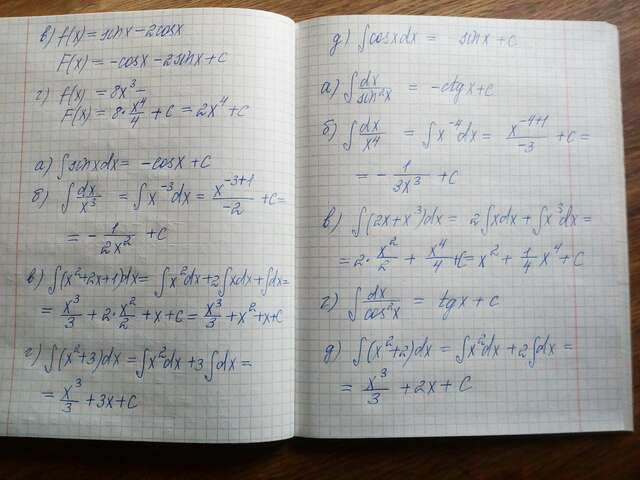 в) f(x) = sinx - 2cosx
F(x) = -cosx - 2sinx + C
г) f(x) = 8x³ -
F(x) = 8·x⁴/4 + C = 2x⁴ + C
а) ∫sinxdx = -cosx + C
б) ∫dx/x³ = ∫x⁻³dx = x⁻³⁺¹/-2 + C =
= -1/2x² + C
в) ∫(x²+2x+1)dx = ∫x²dx + 2∫xdx + ∫dx =
= x³/3 + 2·x²/2 + x + C = x³/3 + x² + x + C
г) ∫(x²+3)dx = ∫x²dx + 3∫dx =
= x³/3 + 3x + C
д) ∫cosxdx = sinx + C
а) ∫dx/sin²x = -ctgx + C
б) ∫dx/x⁴ = ∫x⁻⁴dx = x⁻⁴⁺¹/-3 + C =
= -1/3x³ + C
в) ∫(2x+x³)dx = 2∫xdx + ∫x³dx =
= 2·x²/2 + x⁴/4 + C = x² + 1/4x⁴ + C
г) ∫dx/cos²x = tgx + C
д) ∫(x²+2)dx = ∫x²dx + 2∫dx =
= x³/3 + 2x + C